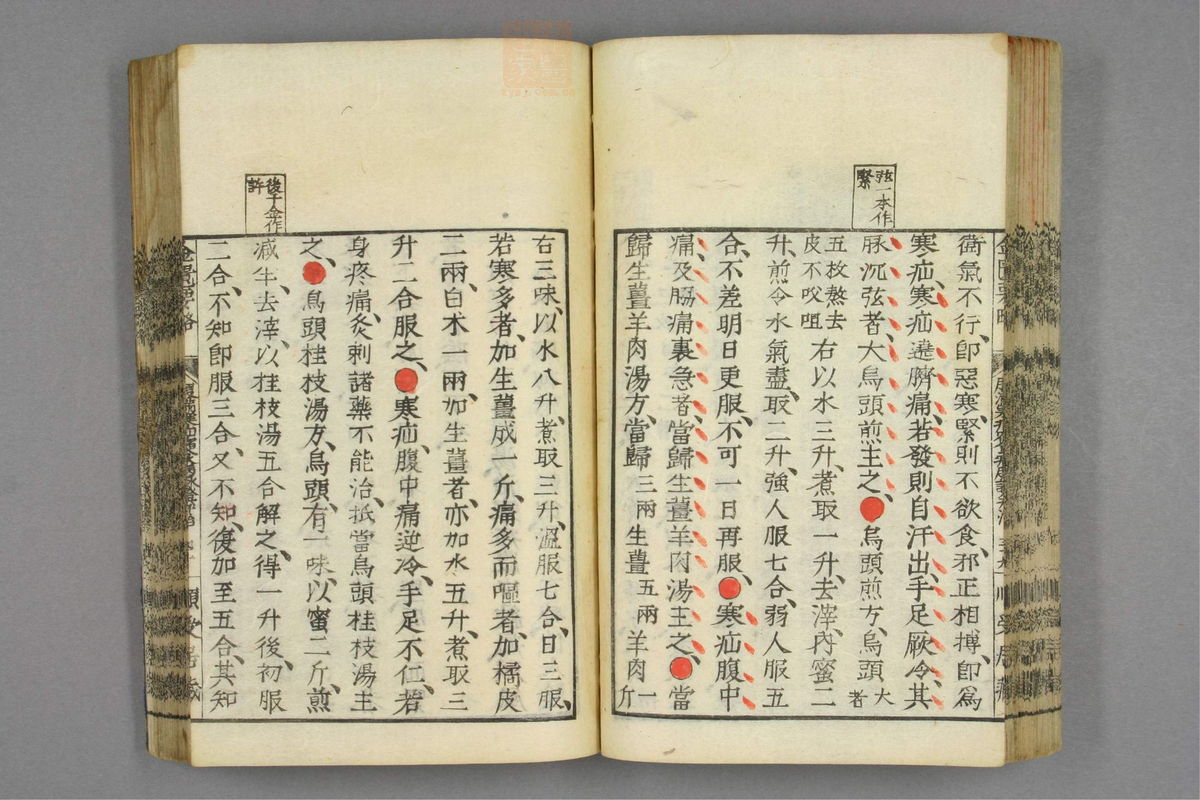 弦一本作
緊
衛氣不行、卽惡寒、緊則不欲食、邪正相搏、卽爲
寒疝、寒疝遶臍痛、若發則自汗出、手足厥冷、其
脈沉弦者、大烏頭煎主之、●烏頭煎方、烏頭大者
五枚熬去皮不咬咀右以水三升、煮取一升、去滓、內蜜二
升、煎令水氣盡、取二升、強人服七合、弱人服五
合、不差明日更服、不可一日再服、●寒疝腹中
痛、及脇痛裏急者、當歸生薑羊肉湯主之、●當
歸生薑羊肉湯方、當歸三兩生薑五兩羊肉一斤
後千金作
許
右三味、以水八升、煮取三升、溫服七合、日三服、
若寒多者、加生薑成一斤、痛多而嘔者、加橘皮
二兩、白朮一兩、加生薑者、亦加水五升、煮取三
升二合服之、●寒疝、腹中痛逆冷、手足不仁、若
身疼痛、灸刺諸藥不能治、抵當烏頭桂枝湯主
之、●烏頭桂枝湯方、烏頭、有一味、以蜜二斤、煎
減半、去滓、以桂枝湯五合解之、得一升後、初服
二合、不知卽服三合、又不知、復加至五合、其知